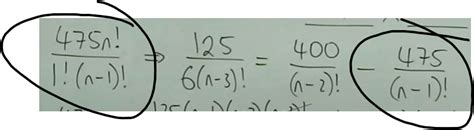 475n! / 1!(n-1)! ⇒ 125 / 6(n-3)! = 400 / (n-2)! - 475 / (n-1)!